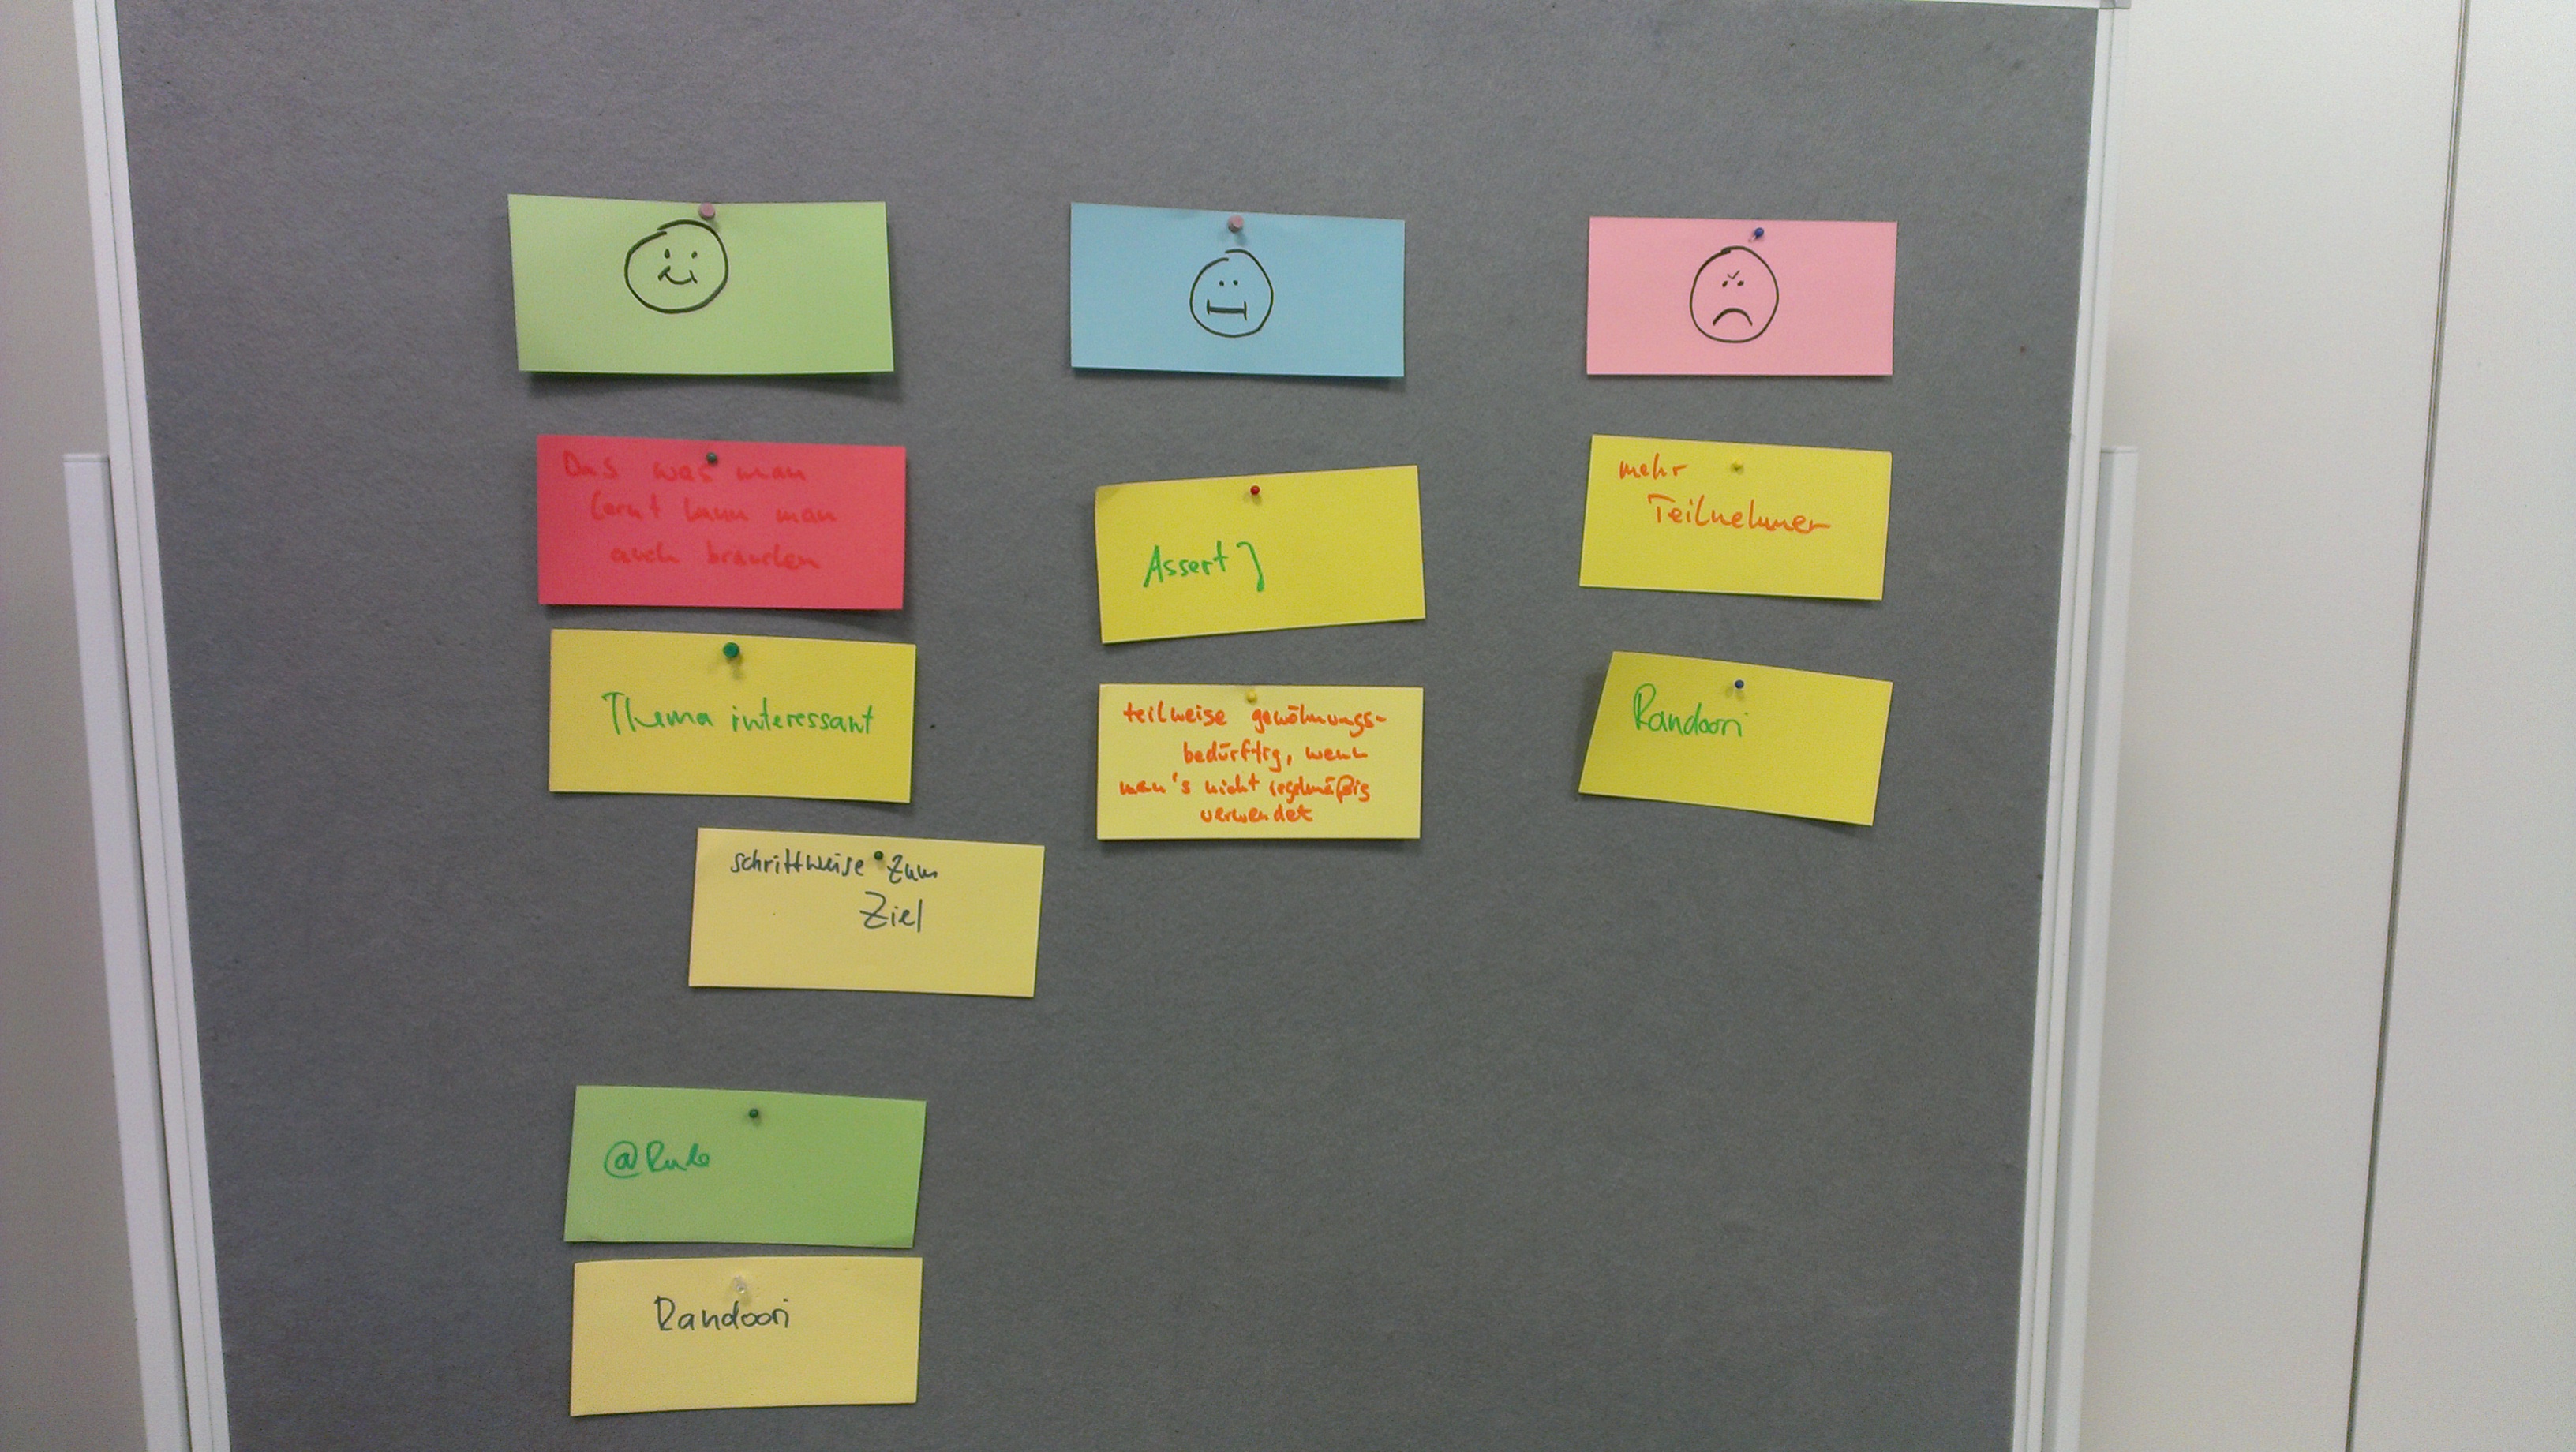 Das was man
lernt kann man
auch brauchen
Thema interessant
schrittweise zum
Ziel
@Rule
Randoori
AssertJ
teilweise gewöhnungs-
bedürftig, wenn
man's nicht regelmäßig
verwendet
mehr
Teilnehmer
Randoori